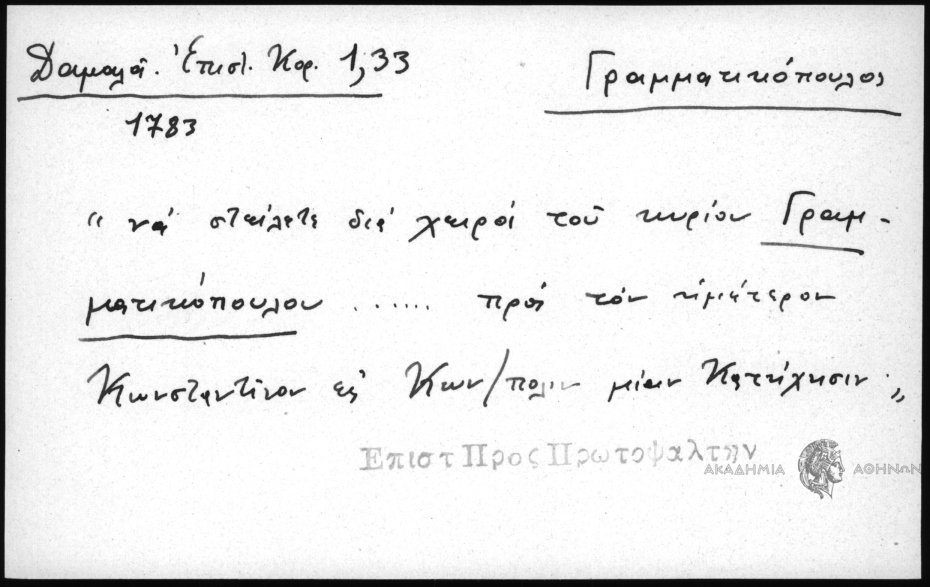 Δαμαλᾶ. Ἐπιστ. Κορ. 1,33
Γραμματικόπουλος
1783
“ νά στείλετε διά χειρός τοῦ κυρίου Γραμ-
ματικόπουλου ...... πρός τόν ἡμέτερον
Κωνσταντῖνον εἰς Κων/πολιν μίαν Κατήχησιν „
Επιστ Προς Πρωτοψαλτην
ΑΚΑΔΗΜΙΑ ΑΘΗΝΩΝ